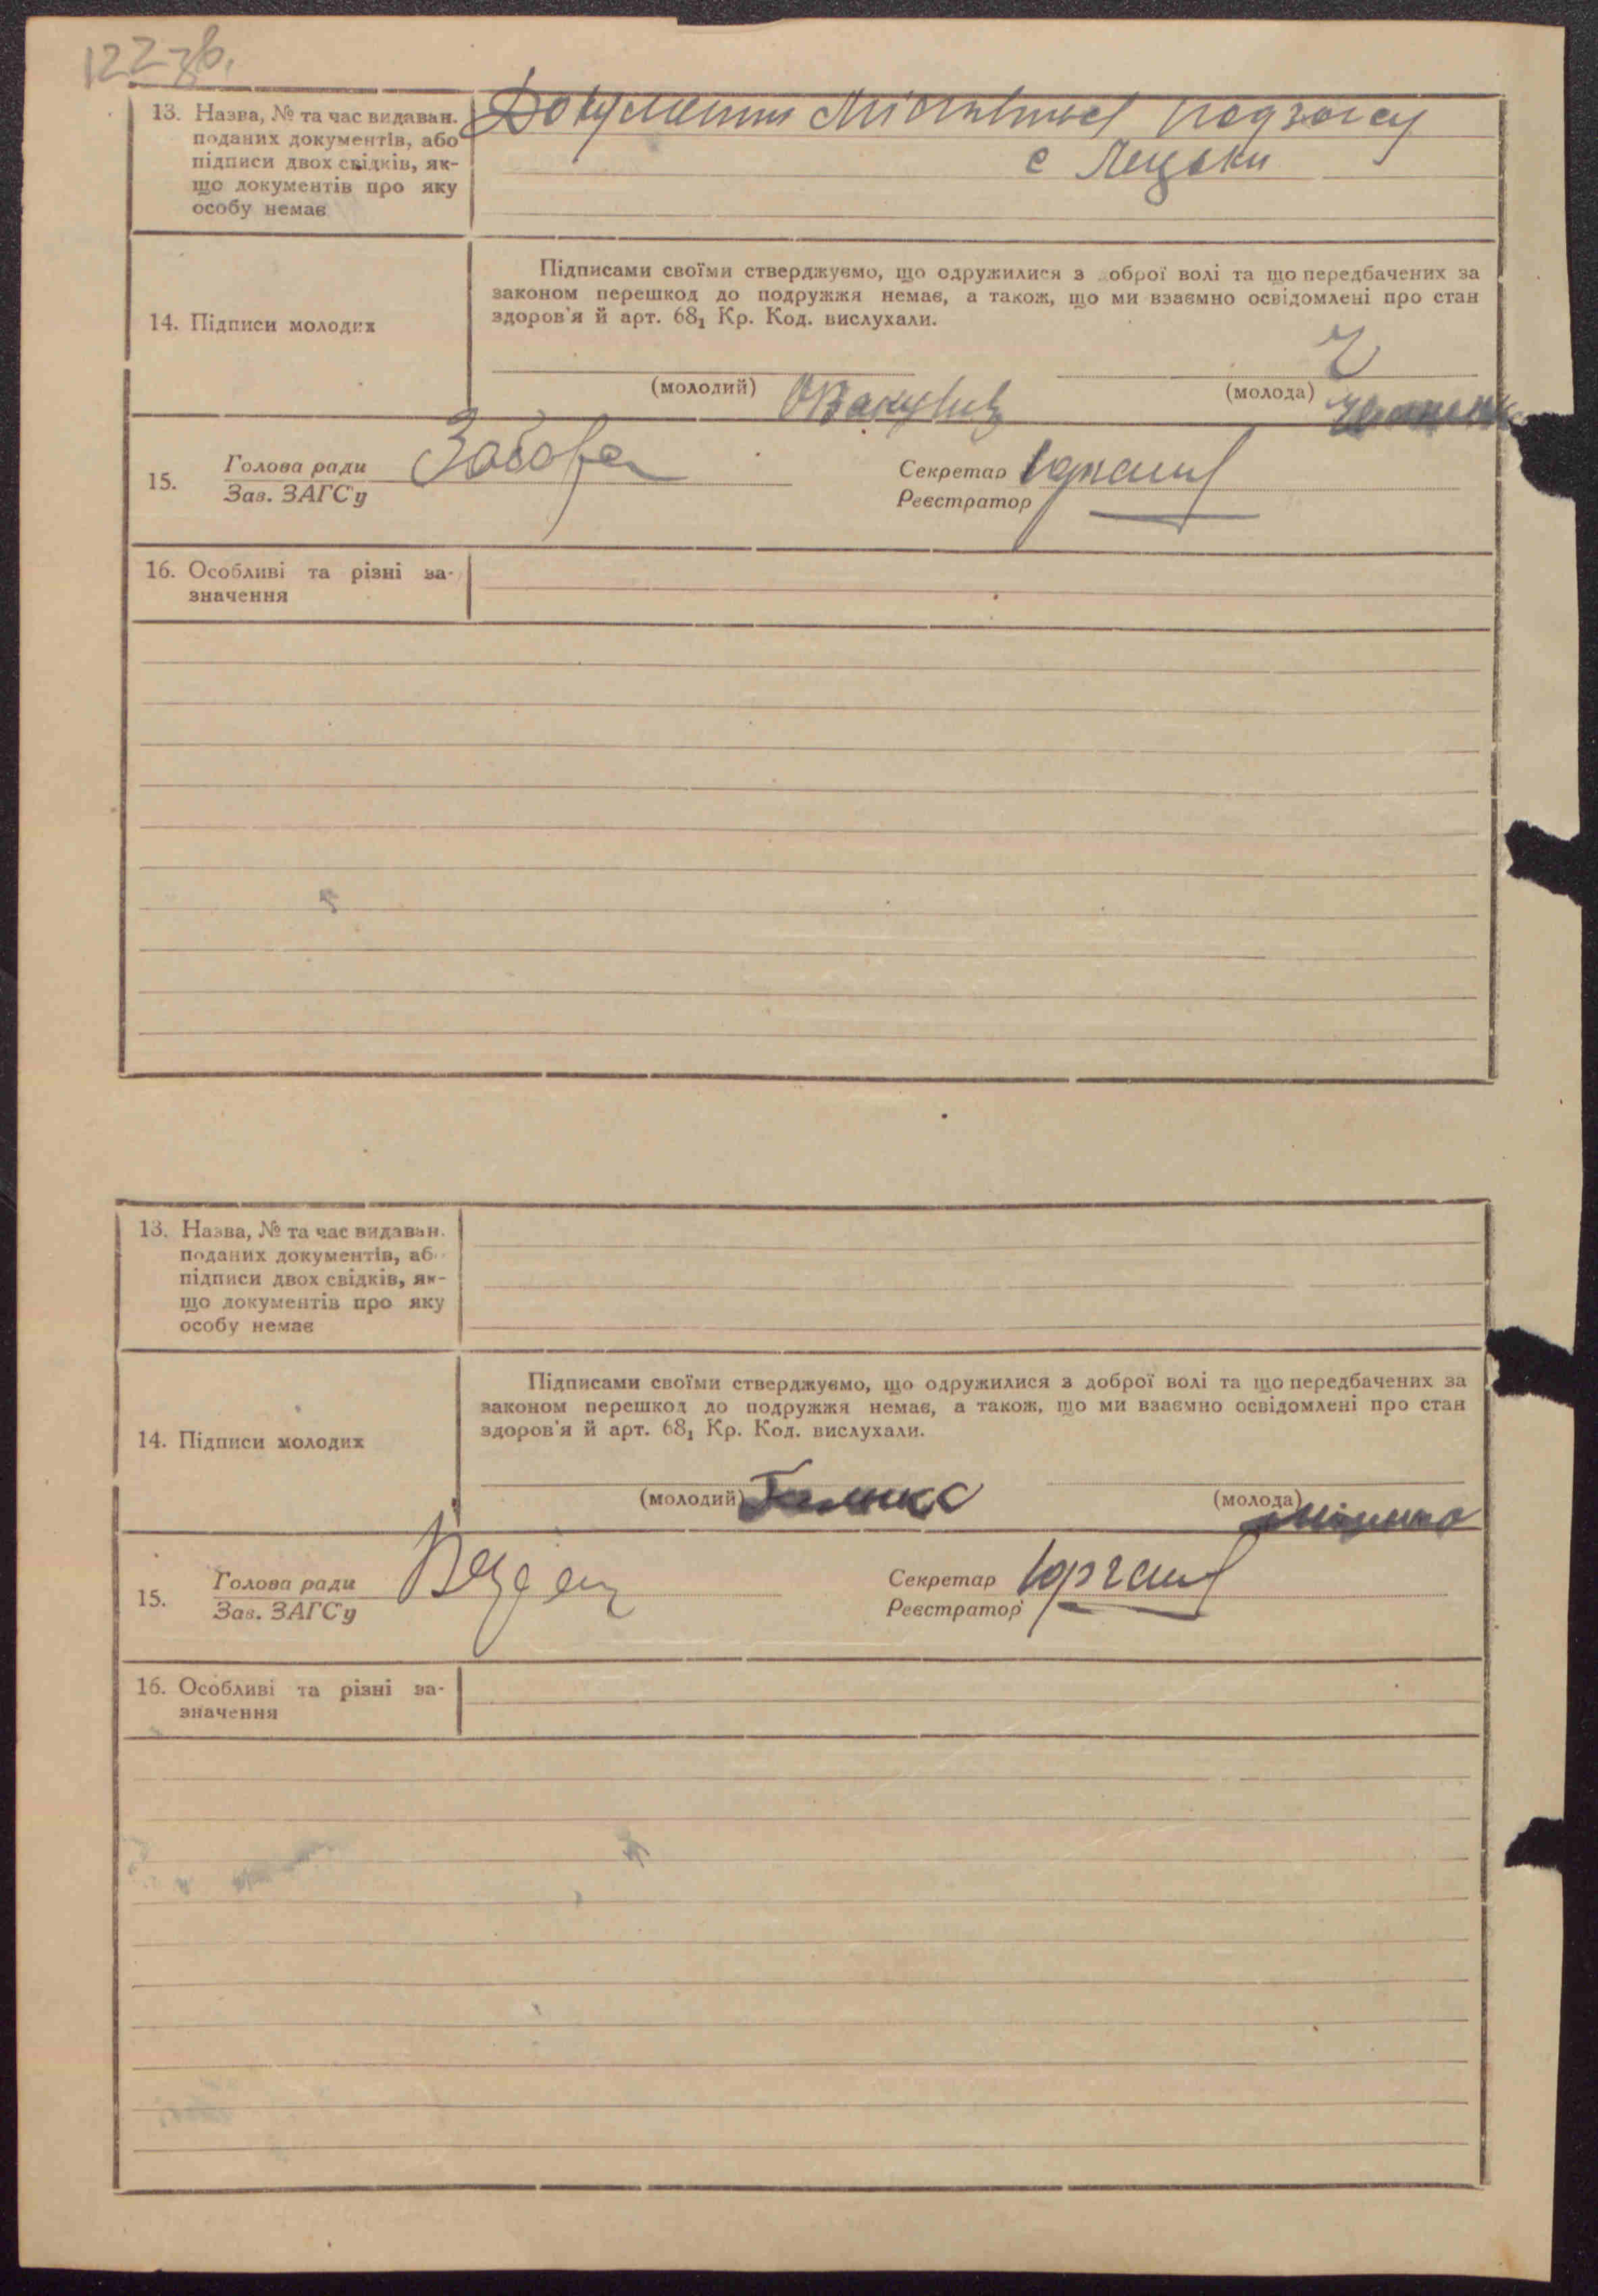 122 зв.
13. Назва, № та час видаван.
поданих документів, або
підписи двох свідків, як-
що документів про яку
особу немає
с Лецьки
Підписами своїми стверджуємо, що одружилися з доброї волі та що передбачених за
законом перешкод до подружжя немає, а також, що ми взаємно освідомлені про стан
здоров'я й арт. 68₁ Кр. Код. вислухали.
14. Підписи молодих
(молодий)
(молода)
15. Голова ради
Зав. ЗАГС'у
Секретар
Реєстратор
16. Особливі та різні за-
значення
13. Назва, № та час видаван.
поданих документів, або
підписи двох свідків, як-
що документів про яку
особу немає
Підписами своїми стверджуємо, що одружилися з доброї волі та що передбачених за
законом перешкод до подружжя немає, а також, що ми взаємно освідомлені про стан
здоров'я й арт. 68₁ Кр. Код. вислухали.
14. Підписи молодих
(молодий)
(молода)
15. Голова ради
Зав. ЗАГС'у
Секретар
Реєстратор
16. Особливі та різні за-
значення